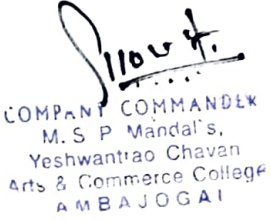 COMPANY COMMANDER
M. S P Mandal's,
Yeshwantrao Chavan
Arts & Commerce College
AMBAJOGAI